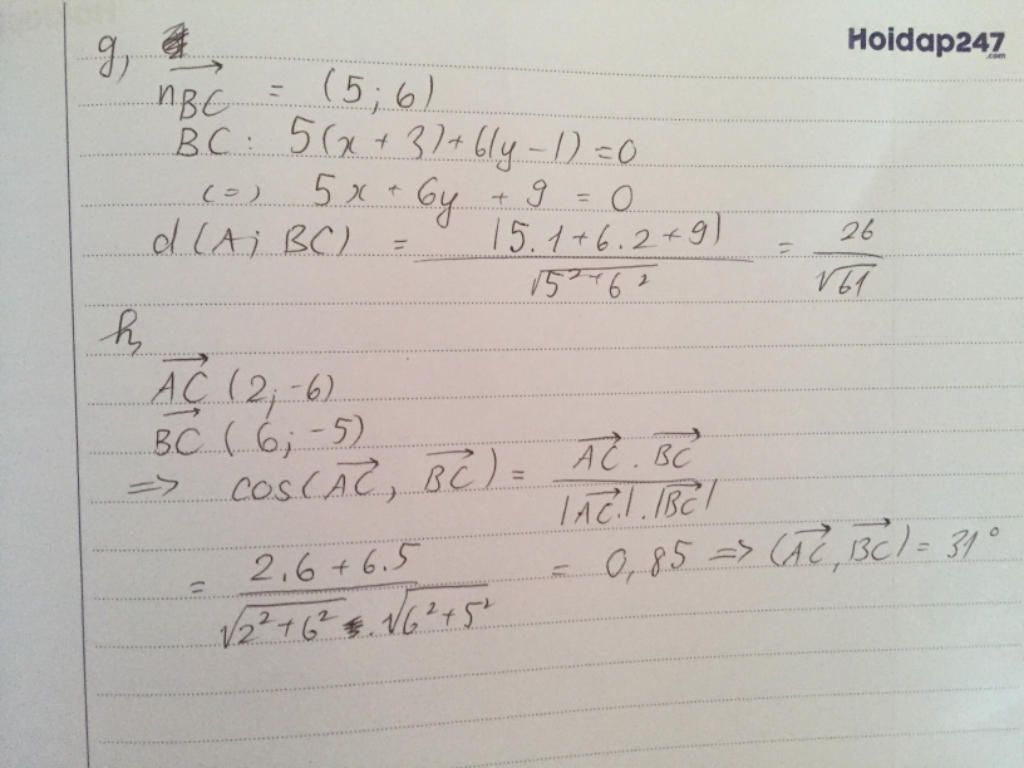 Hoidap247
.com
g,
n⃗BC = (5; 6)
BC: 5(x + 3) + 6(y - 1) = 0
(=) 5x + 6y + 9 = 0
d(A; BC) = |5.1 + 6.2 + 9| / √5² + 6² = 26 / √61
h,
AC⃗ (2; -6)
BC⃗ (6; -5)
=> cos(AC⃗, BC⃗) = AC⃗ . BC⃗ / |AC⃗| . |BC⃗|
= 2.6 + 6.5 / √2² + 6² . √6² + 5² = 0,85 => (AC⃗, BC⃗) = 31°